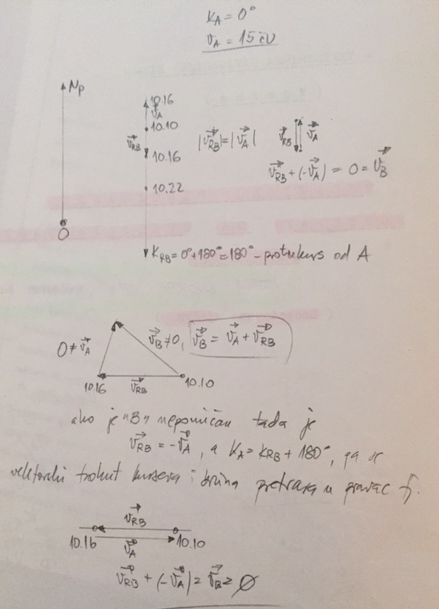 K_A = 0°
v_A = 15 čv
N_p
10.16
v_A
10.10
v_RB
10.16
10.22
|v_RB| = |v_A|
v_RB v_A
v_RB + (-v_A) = 0 = v_B
O
K_RB = 0° + 180° = 180° - protukurs od A
0 ≠ v_A
v_B ≠ 0, v_B = v_A + v_RB
10.16 v_RB 10.10
ako je "B" nepomičan tada je
v_RB = -v_A, a K_A = K_RB + 180°, pa se
vektorski trokut kurseva i brzina pretvara u pravac tj.
v_RB
10.16 v_A 10.10
v_RB + (-v_A) = v_B = 0